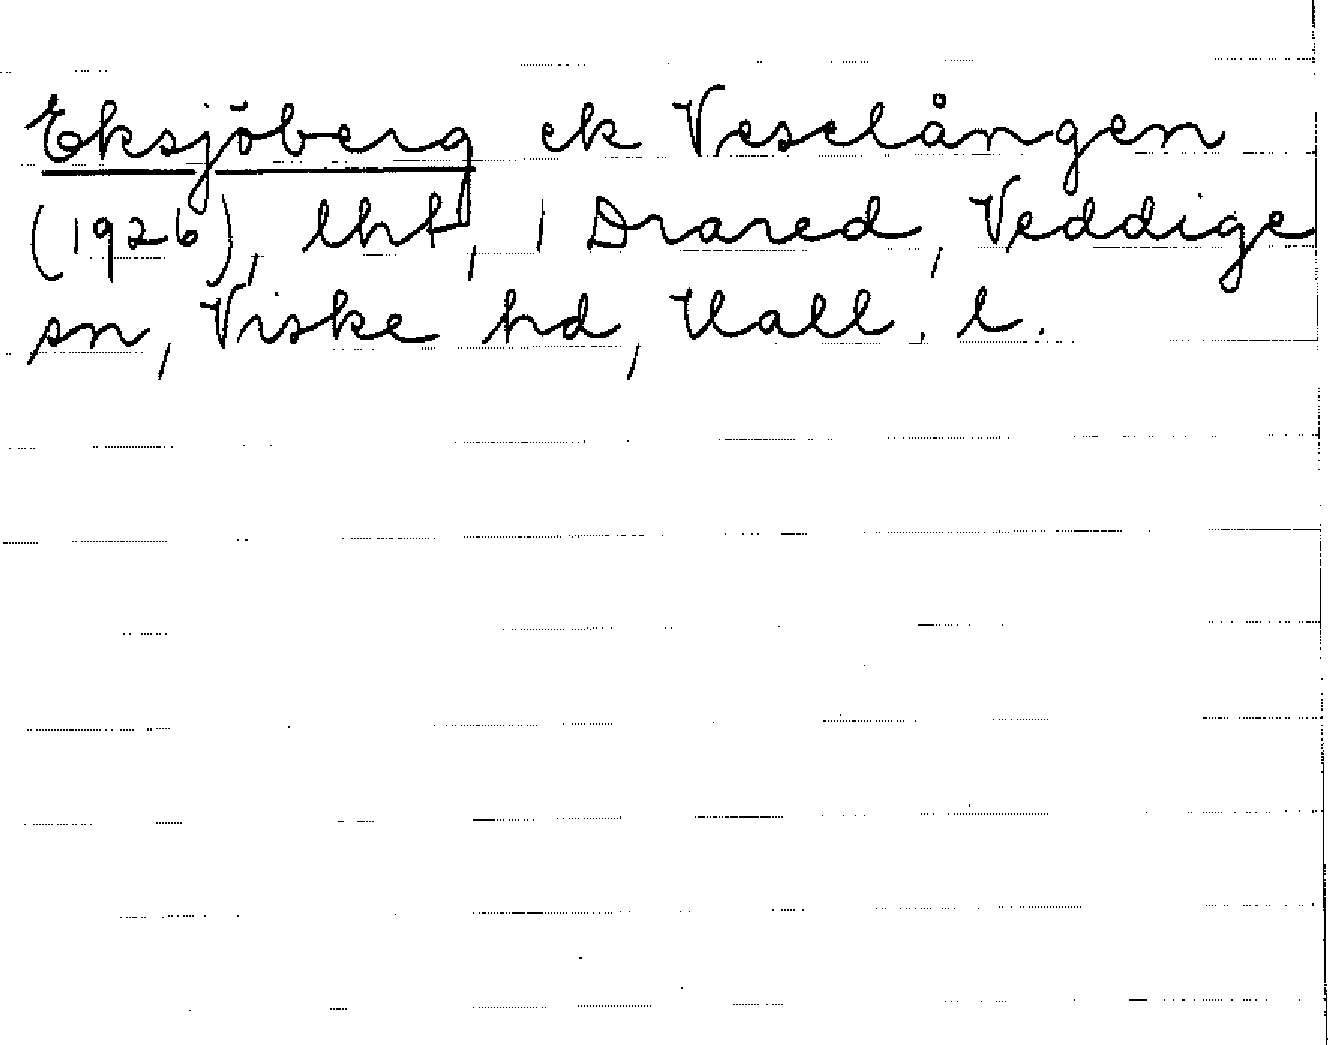 Eksjöberg ek Veselången
(1926), lht, i Drared, Veddige
sn, Viske hd, Hall. l.